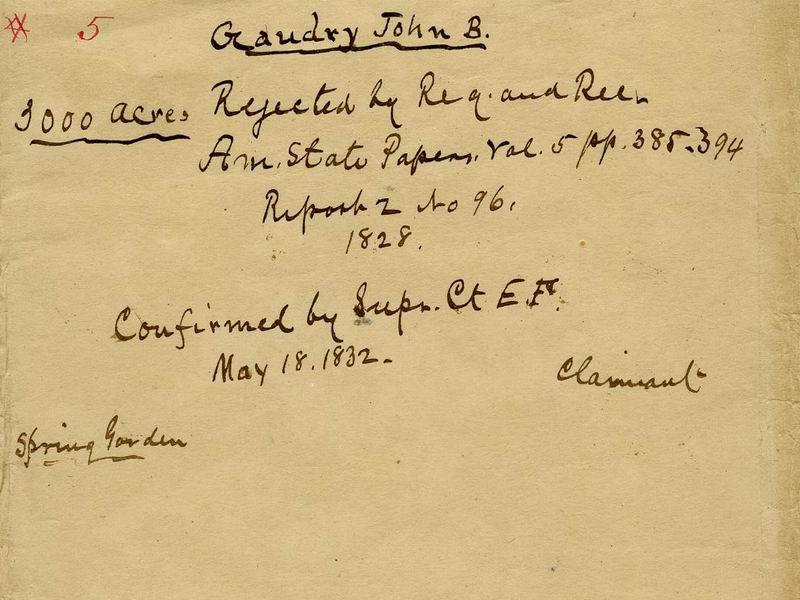 # 5
Gaudry John B.
3000 acres Rejected by Reg. and Rec.
Am. State Papers. Vol. 5 pp. 385-394
Report 2 No 96.
1828.
Confirmed by Supr. Ct E. Fª.
May 18. 1832-
Claimant
Spring Garden